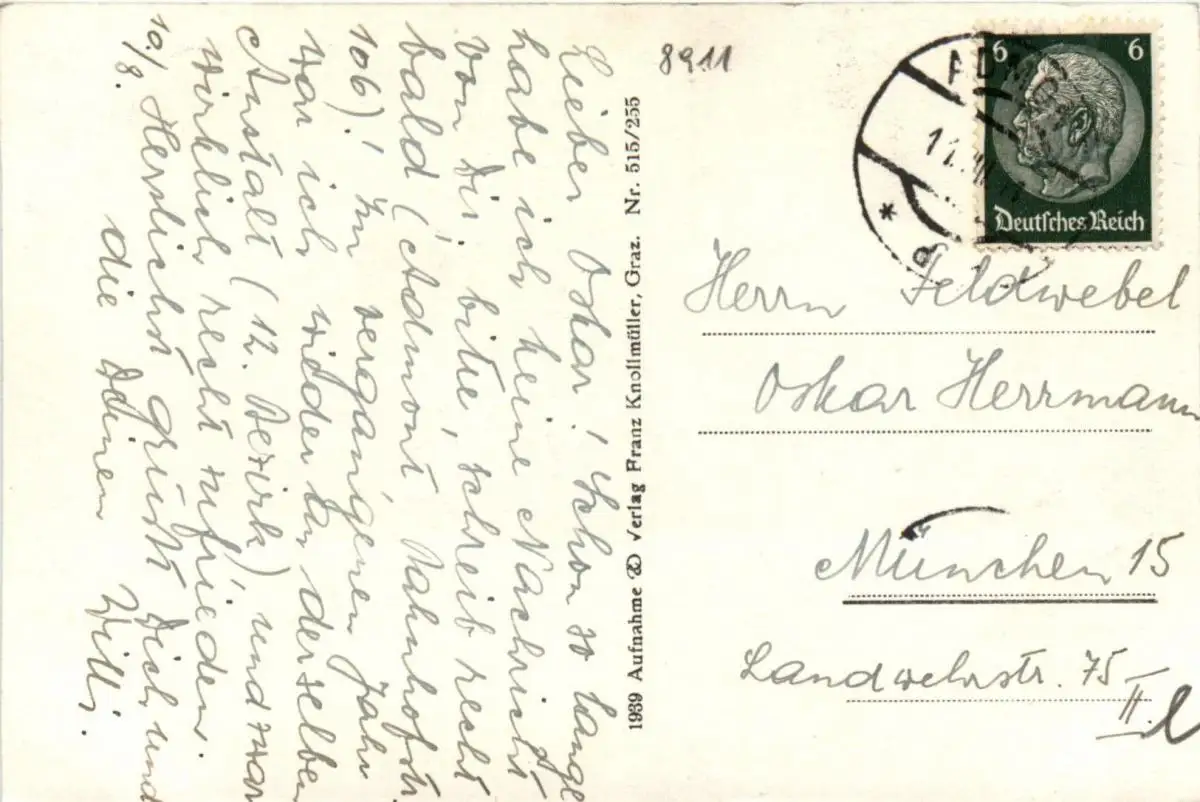 Lieber Oskar! Schon so lange
habe ich keine Nachricht
von Dir, bitte, schreib recht
bald (Admont, Bahnhofstr.
106)! Im vergangenen Jahr
war ich wieder an derselben
Anstalt (12. Bezirk), und zwar
wirklich recht zufrieden.
10./8. Herzlichst grüßt Dich und
die Deinen Willi.
1939 Aufnahme & Verlag Franz Knollmüller, Graz. Nr. 515/255
8911
6 6
Deutsches Reich
Herrn Feldwebel
Oskar Herrmann
München 15
Landwehrstr. 75
II. l